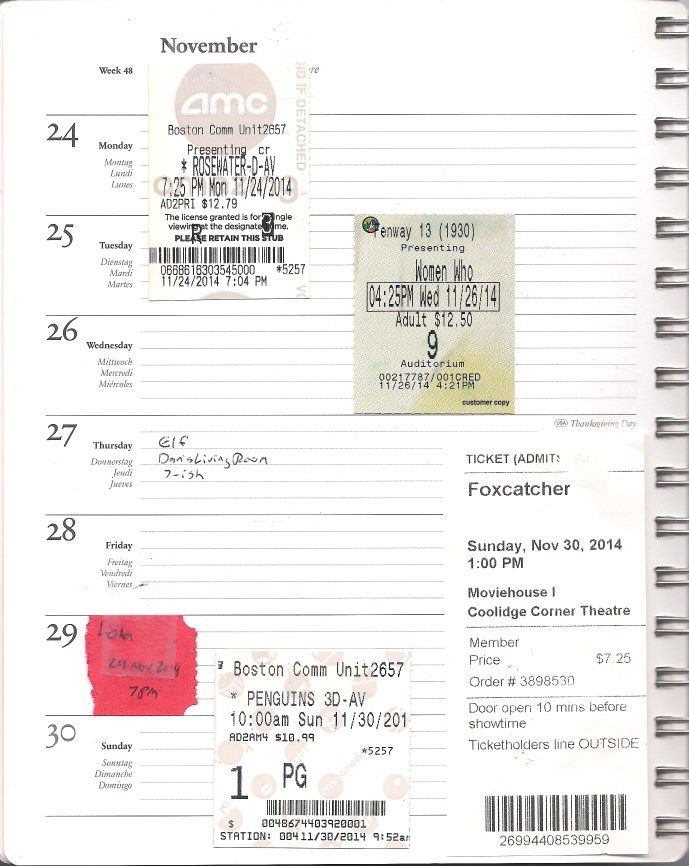 November
Week 48
24
Monday
Montag
Lundi
Lunes
amc
ID IF DETACHED
Boston Comm Unit2657
Presenting cr
* ROSEWATER-D-AV
7:25 PM Mon 11/24/2014
AD2PRI $12.79
The license granted is for single
viewing at the designated time.
R 8
PLEASE RETAIN THIS STUB
0668616303545000 *5257
11/24/2014 7:04 PM
25
Tuesday
Dienstag
Mardi
Martes
Fenway 13 (1930)
Presenting
Women Who
04:25PM Wed 11/26/14
Adult $12.50
9
Auditorium
00217787/001CRED
11/26/14 4:21PM
customer copy
26
Wednesday
Mittwoch
Mercredi
Miércoles
USA Thanksgiving Day
27
Thursday
Donnerstag
Jeudi
Jueves
Elf
Dan's Living Room
7-ish
28
Friday
Freitag
Vendredi
Viernes
29
Lola
29 NOV 2014
7PM
30
Sunday
Sonntag
Dimanche
Domingo
Boston Comm Unit2657
* PENGUINS 3D-AV
10:00am Sun 11/30/201
AD2AM4 $10.99
*5257
1 PG
$ 0048674403920001
STATION: 004 11/30/2014 9:52am
TICKET (ADMIT:
Foxcatcher
Sunday, Nov 30, 2014
1:00 PM
Moviehouse I
Coolidge Corner Theatre
Member
Price $7.25
Order # 3898530
Door open 10 mins before
showtime
Ticketholders line OUTSIDE
26994408539959